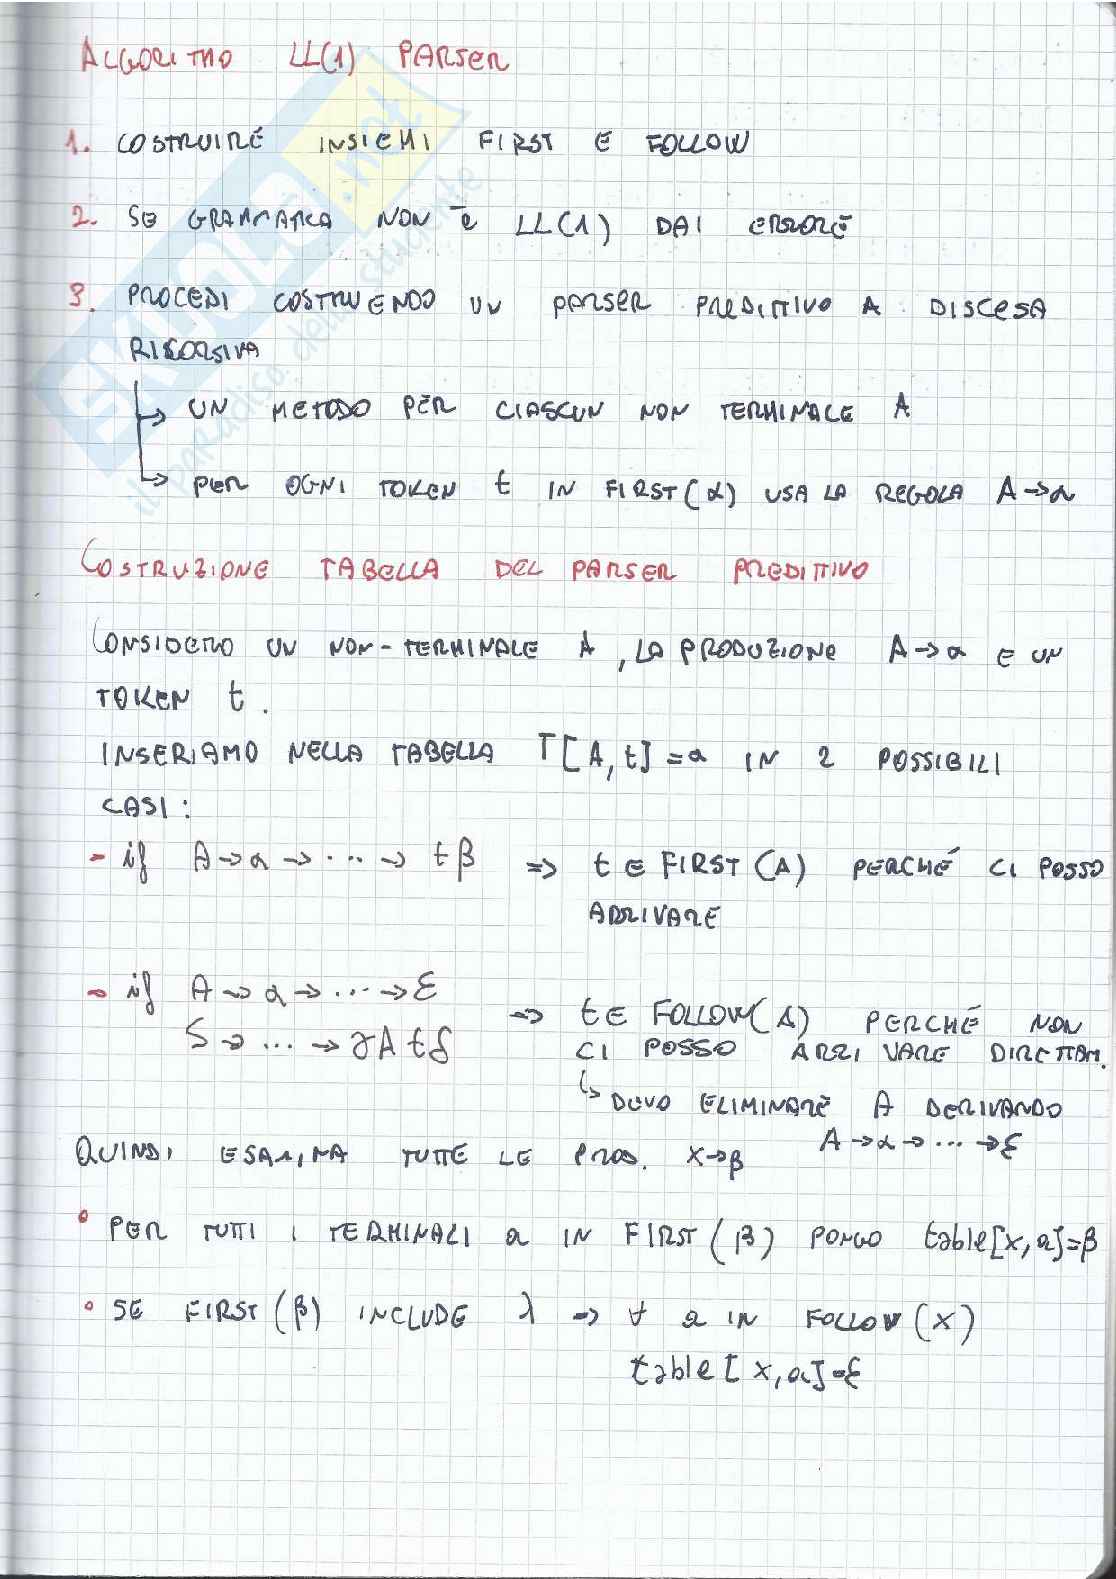 ALGORITMO LL(1) PARSER
1. COSTRUIRE INSIEMI FIRST E FOLLOW
2. SE GRAMMATICA NON è LL(1) DAI ERRORE
3. PROCEDI COSTRUENDO UN PARSER PREDITTIVO A DISCESA
RICORSIVA
↳ UN METODO PER CIASCUN NON TERMINALE A
↳ PER OGNI TOKEN t IN FIRST(α) USA LA REGOLA A→α
COSTRUZIONE TABELLA DEL PARSER PREDITTIVO
CONSIDERO UN NON-TERMINALE A, LA PRODUZIONE A→α E UN
TOKEN t.
INSERIAMO NELLA TABELLA T[A,t]=α IN 2 POSSIBILI
CASI:
- if A→α→...→ tβ ⇒ t ∈ FIRST(A) PERCHÉ CI POSSO
ARRIVARE
- if A→α→...→ε
S→...→γAtδ ⇒ t ∈ FOLLOW(A) PERCHÉ NON
CI POSSO ARRIVARE DIRETTAM.
↳ DEVO ELIMINARE A DERIVANDO
A→α→...→ε
QUINDI ESAMINA TUTTE LE PROD. X→β
• PER TUTTI I TERMINALI a IN FIRST(β) PONGO table[x,a]=β
• SE FIRST(β) INCLUDE λ ⇒ ∀ a IN FOLLOW(X)
table[x,a]=ε
SKUOLA.net
il paradiso dello studente